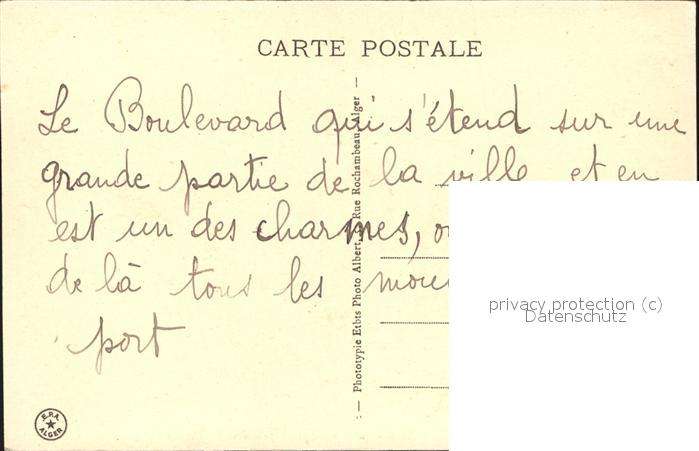 CARTE POSTALE
Le Boulevard qui s'étend sur une
grande partie de la ville et en
est un des charmes,
de là tous les
port
Phototypie Etbts Photo Albert, Rue Rochambeau, Alger
E.P.A.
ALGER
privacy protection (c)
Datenschutz